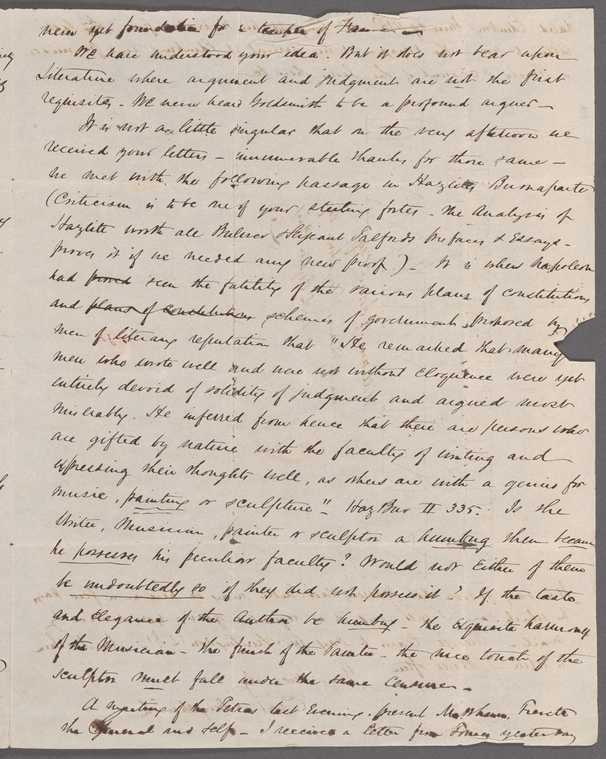 never yet foundation for a temple of Fame —
We have understood your idea. But it does not bear upon
Literature where argument and judgment are not the first
requisites. We never heard Goldsmith to be a profound arguer —
It is not a little singular that on the very afternoon we
received your letters — innumerable thanks for those same —
we met with the following passage in Hazlitts Buonaparte
(Criticism is to be one of your sterling fortes — the Analysis of
Hazlitt worth all Bulwer & Serjeant Talfords Prefaces & Essays —
proves it if we needed any new proof.) — It is when Napoleon
had proved seen the futility of the various plans of constitutions
and plans of constitutions schemes of government proposed by
men of literary reputation that "He remarked that many
men who wrote well and were not without eloquence were yet
entirely devoid of solidity of judgment and argued most
miserably. He inferred from hence that there are persons who
are gifted by nature with the faculty of writing and
expressing their thoughts well, as others are with a genius for
music, painting or sculpture" — Haz Buo II 335. Is the
Writer, Musician, painter or sculptor a humbug then because
he possesses his peculiar faculty? Would not either of them
be undoubtedly so if they did not possess it? If the taste
and elegance of the Author be humbug — the exquisite harmony
of the Musician — the finish of the Painter — the nice touch of the
sculptor must fall under the same censure —
A meeting of the last Evening. present
the General and self — I received a letter from yesterday